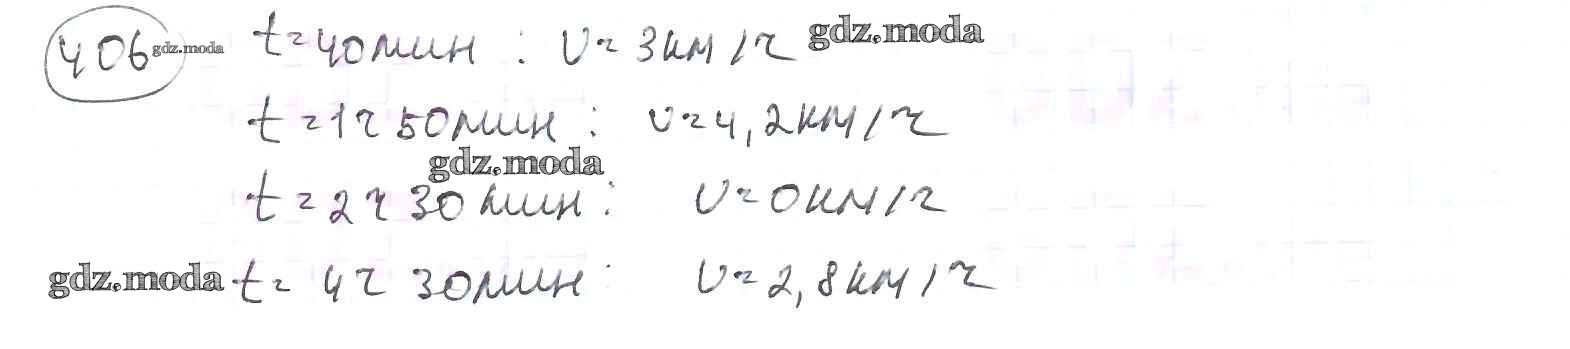 406 gdz.moda t = 40 мин : v = 3 км/ч gdz.moda
t = 1ч 50 мин : v = 4,2 км/ч
gdz.moda
t = 2ч 30 мин : v = 0 км/ч
gdz.moda t = 4ч 30 мин : v = 2,8 км/ч